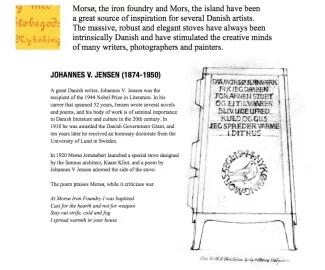 støbegods:
Nykøbing
Morsø, the iron foundry and Mors, the island have been
a great source of inspiration for several Danish artists.
The massive, robust and elegant stoves have always been
intrinsically Danish and have stimulated the creative minds
of many writers, photographers and painters.
JOHANNES V. JENSEN (1874-1950)
A great Danish writer, Johannes V. Jensen was the
recipient of the 1944 Nobel Prize in Literature. In his
career that spanned 52 years, Jensen wrote several novels
and poems, and his body of work is of seminal importance
to Danish literature and culture in the 20th century. In
1910 he was awarded the Danish Government Grant, and
ten years later he received an honorary doctorate from the
University of Lund in Sweden.
In 1920 Morsø Jernstøberi launched a special stove designed
by the famous architect, Kaare Klint, and a poem by
Johannes V Jensen adorned the side of the stove.
The poem praises Morsø, while it criticizes war.
At Morsø Iron Foundry I was baptized
Cast for the hearth and not for weapon
Stay out strife, cold and fog
I spread warmth in your house
PAA MORSØ JERNVÆRK
FIK JEG DAABEN
FOR ARNEN STØBT
OG EJ TIL VAABEN
BLIV UDE UFRED
KULD OG GUS
JEG SPREDER VARME
I DIT HUS